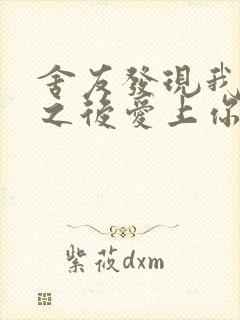 舍友發現我
之後愛上你
紫莜dxm